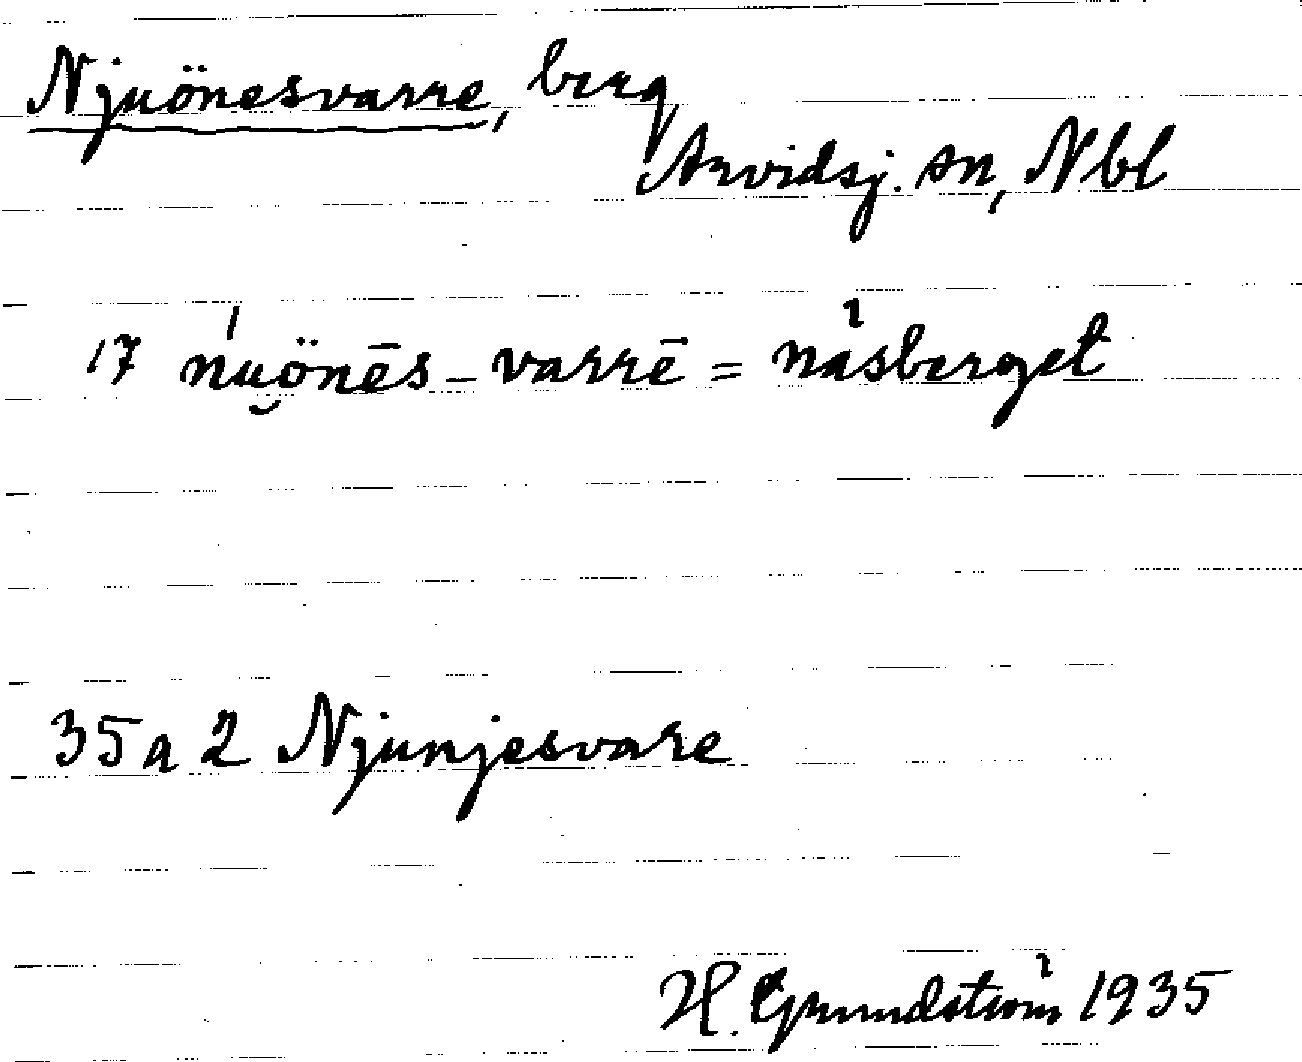 Njuönesvarre, berg
Arvidsj. sn, Nbl
17 ńu̯önēs-varrē = näsberget
35 a 2 Njunjesvare
H. Grundström 1935